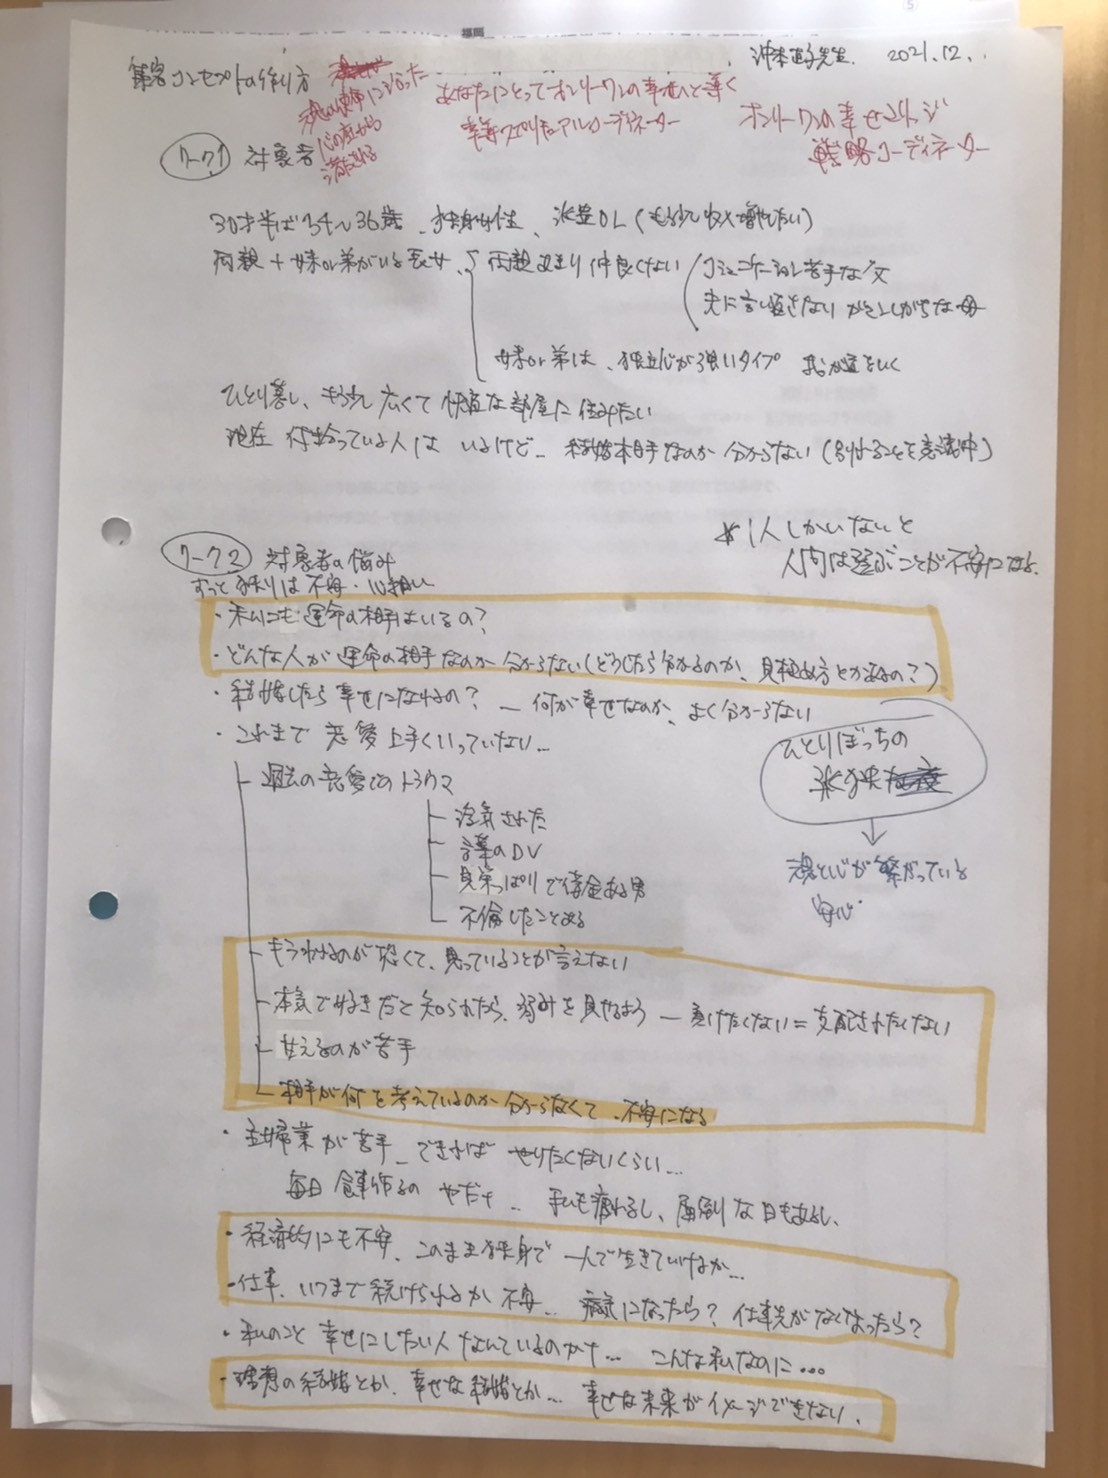 集客コンセプトの作り方
先生 2021.12.
魂の使命に沿った
心の底から
満たされる
あなたにとってオンリーワンの幸せへと導く
幸等スピリチュアルコーディネーター
オンリーワンの幸せ
戦略コーディネーター
ワーク1 対象者
30才半ば34〜36歳、独身女性、派遣OL(もう少し収入増やしたい)
両親+妹or弟がいる長女、
両親あまり仲良くない
コミュニケーション苦手な父
夫に言い返さない がまんしがちな母
妹or弟は、独立心が強いタイプ 我が道をいく
ひとり暮し、もう少し広くて快適な部屋に住みたい
現在 付き合っている人は いるけど… 結婚相手なのか分からない(別れることを意識中)
*1人しかいないと
人間は選ぶことが不安になる。
ワーク2 対象者の悩み
ずっと独りは不安・心細い
・私にも運命の相手はいるの?
・どんな人が運命の相手なのか分からない(どうしたら分かるのか、見極め方とかあるの?)
・結婚したら幸せになれるの? — 何が幸せなのか、よく分からない
・これまで恋愛上手くいっていない…
過去の恋愛でのトラウマ
浮気された
言葉のDV
見栄っぱりで借金ある男
不倫したことある
ひとりぼっちの
魂と心が繋がっている
安心
もうわかれるのが恐くて、思っていることが言えない
本気で好きだと知られたら、弱みを見せるよう — 負けたくない=支配されたくない
甘えるのが苦手
相手が何を考えているのか分からなくて、不安になる
・主婦業が苦手… できれば やりたくないくらい…
毎日食事作るの やだナ… 私も疲れるし、面倒な日もあるし、
・経済的にも不安、このまま独身で一人で生きていけるか…
・仕事、いつまで続けられるか不安… 病気になったら? 仕事先がなくなったら?
・私のこと幸せにしたい人なんているのかナ… こんな私なのに…
・理想の結婚とか、幸せな結婚とか… 幸せな未来がイメージできない。